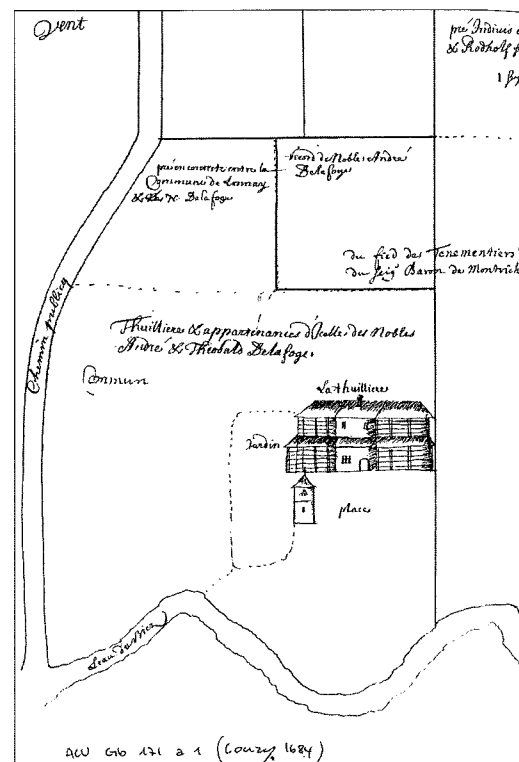 Vent
pré Indivis
& Rodholf
pré en conteste contre la
Commune de Lonnay
Delafoge
record de Nobles André
Delafoge
du fied des Tenementiers
du Seigr Baron de Montrich
Chemin publicq
Thuilliere & appartenances d'Icelle des Nobles
André & Théobald Delafoge
Commun
La thuilliere
Jardin
place
Leau du Bied
ACV Gb 171 a 1 (Lonay, 1684)